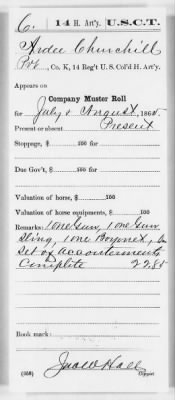 C. 14 H. Art'y. U.S.C.T.
Ardee Churchill
Pvt, Co. K, 14 Reg't U. S. Col'd H. Art'y.
Appears on
Company Muster Roll
for July & August, 1865
Present or absent Present
Stoppage, $ 100 for
Due Gov't, $ 100 for
Valuation of horse, $ 100
Valuation of horse equipments, $ 100
Remarks: 1 one Gun, 1 one Gun
Sling, 1 one Bayonet,
Set of accouterments
Complete 22 85
Book mark:
Hall
(358) Copyist